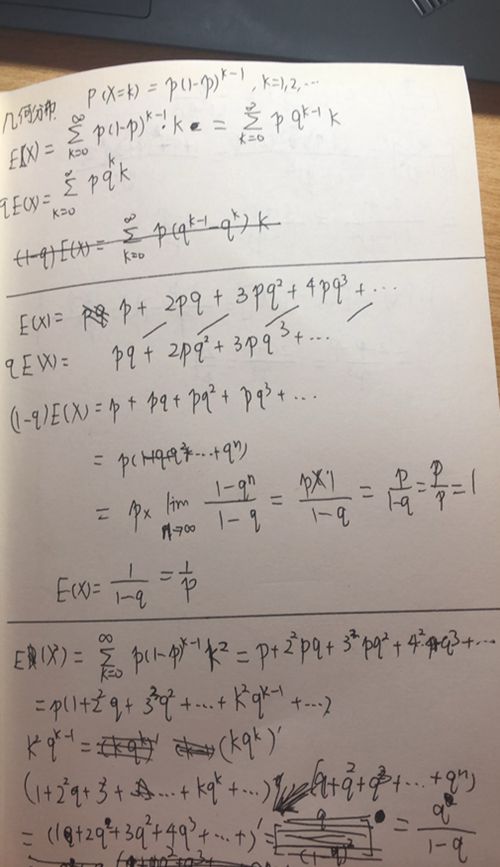 几何分布 P(X=k) = p(1-p)^{k-1}, k=1,2,…
E(X) = \sum_{k=0}^{∞} p(1-p)^{k-1}·k = \sum_{k=0}^{∞} p q^{k-1} k
qE(X) = \sum_{k=0}^{∞} p q^k k
(1-q)E(X) = \sum_{k=0}^{∞} p(q^{k-1}-q^k) k
E(X) = p + 2pq + 3pq² + 4pq³ + …
qE(X) = pq + 2pq² + 3pq³ + …
(1-q)E(X) = p + pq + pq² + pq³ + …
= p(1+q+q²+…+q^n)
= p × lim_{n→∞} \frac{1-q^n}{1-q} = \frac{p×1}{1-q} = \frac{p}{1-q} = \frac{p}{p} = 1
E(X) = \frac{1}{1-q} = \frac{1}{p}
E(X²) = \sum_{k=0}^{∞} p(1-p)^{k-1} k² = p + 2²pq + 3²pq² + 4²pq³ + …
= p(1+2²q+3²q²+…+k²q^{k-1}+…)
k²q^{k-1} = (kq^k)'
(1+2²q+3²+…+kq^k+…) (q+q²+q³+…+q^n)
= (1q+2q²+3q³+4q⁴+…+)' = \frac{q}{1-q}